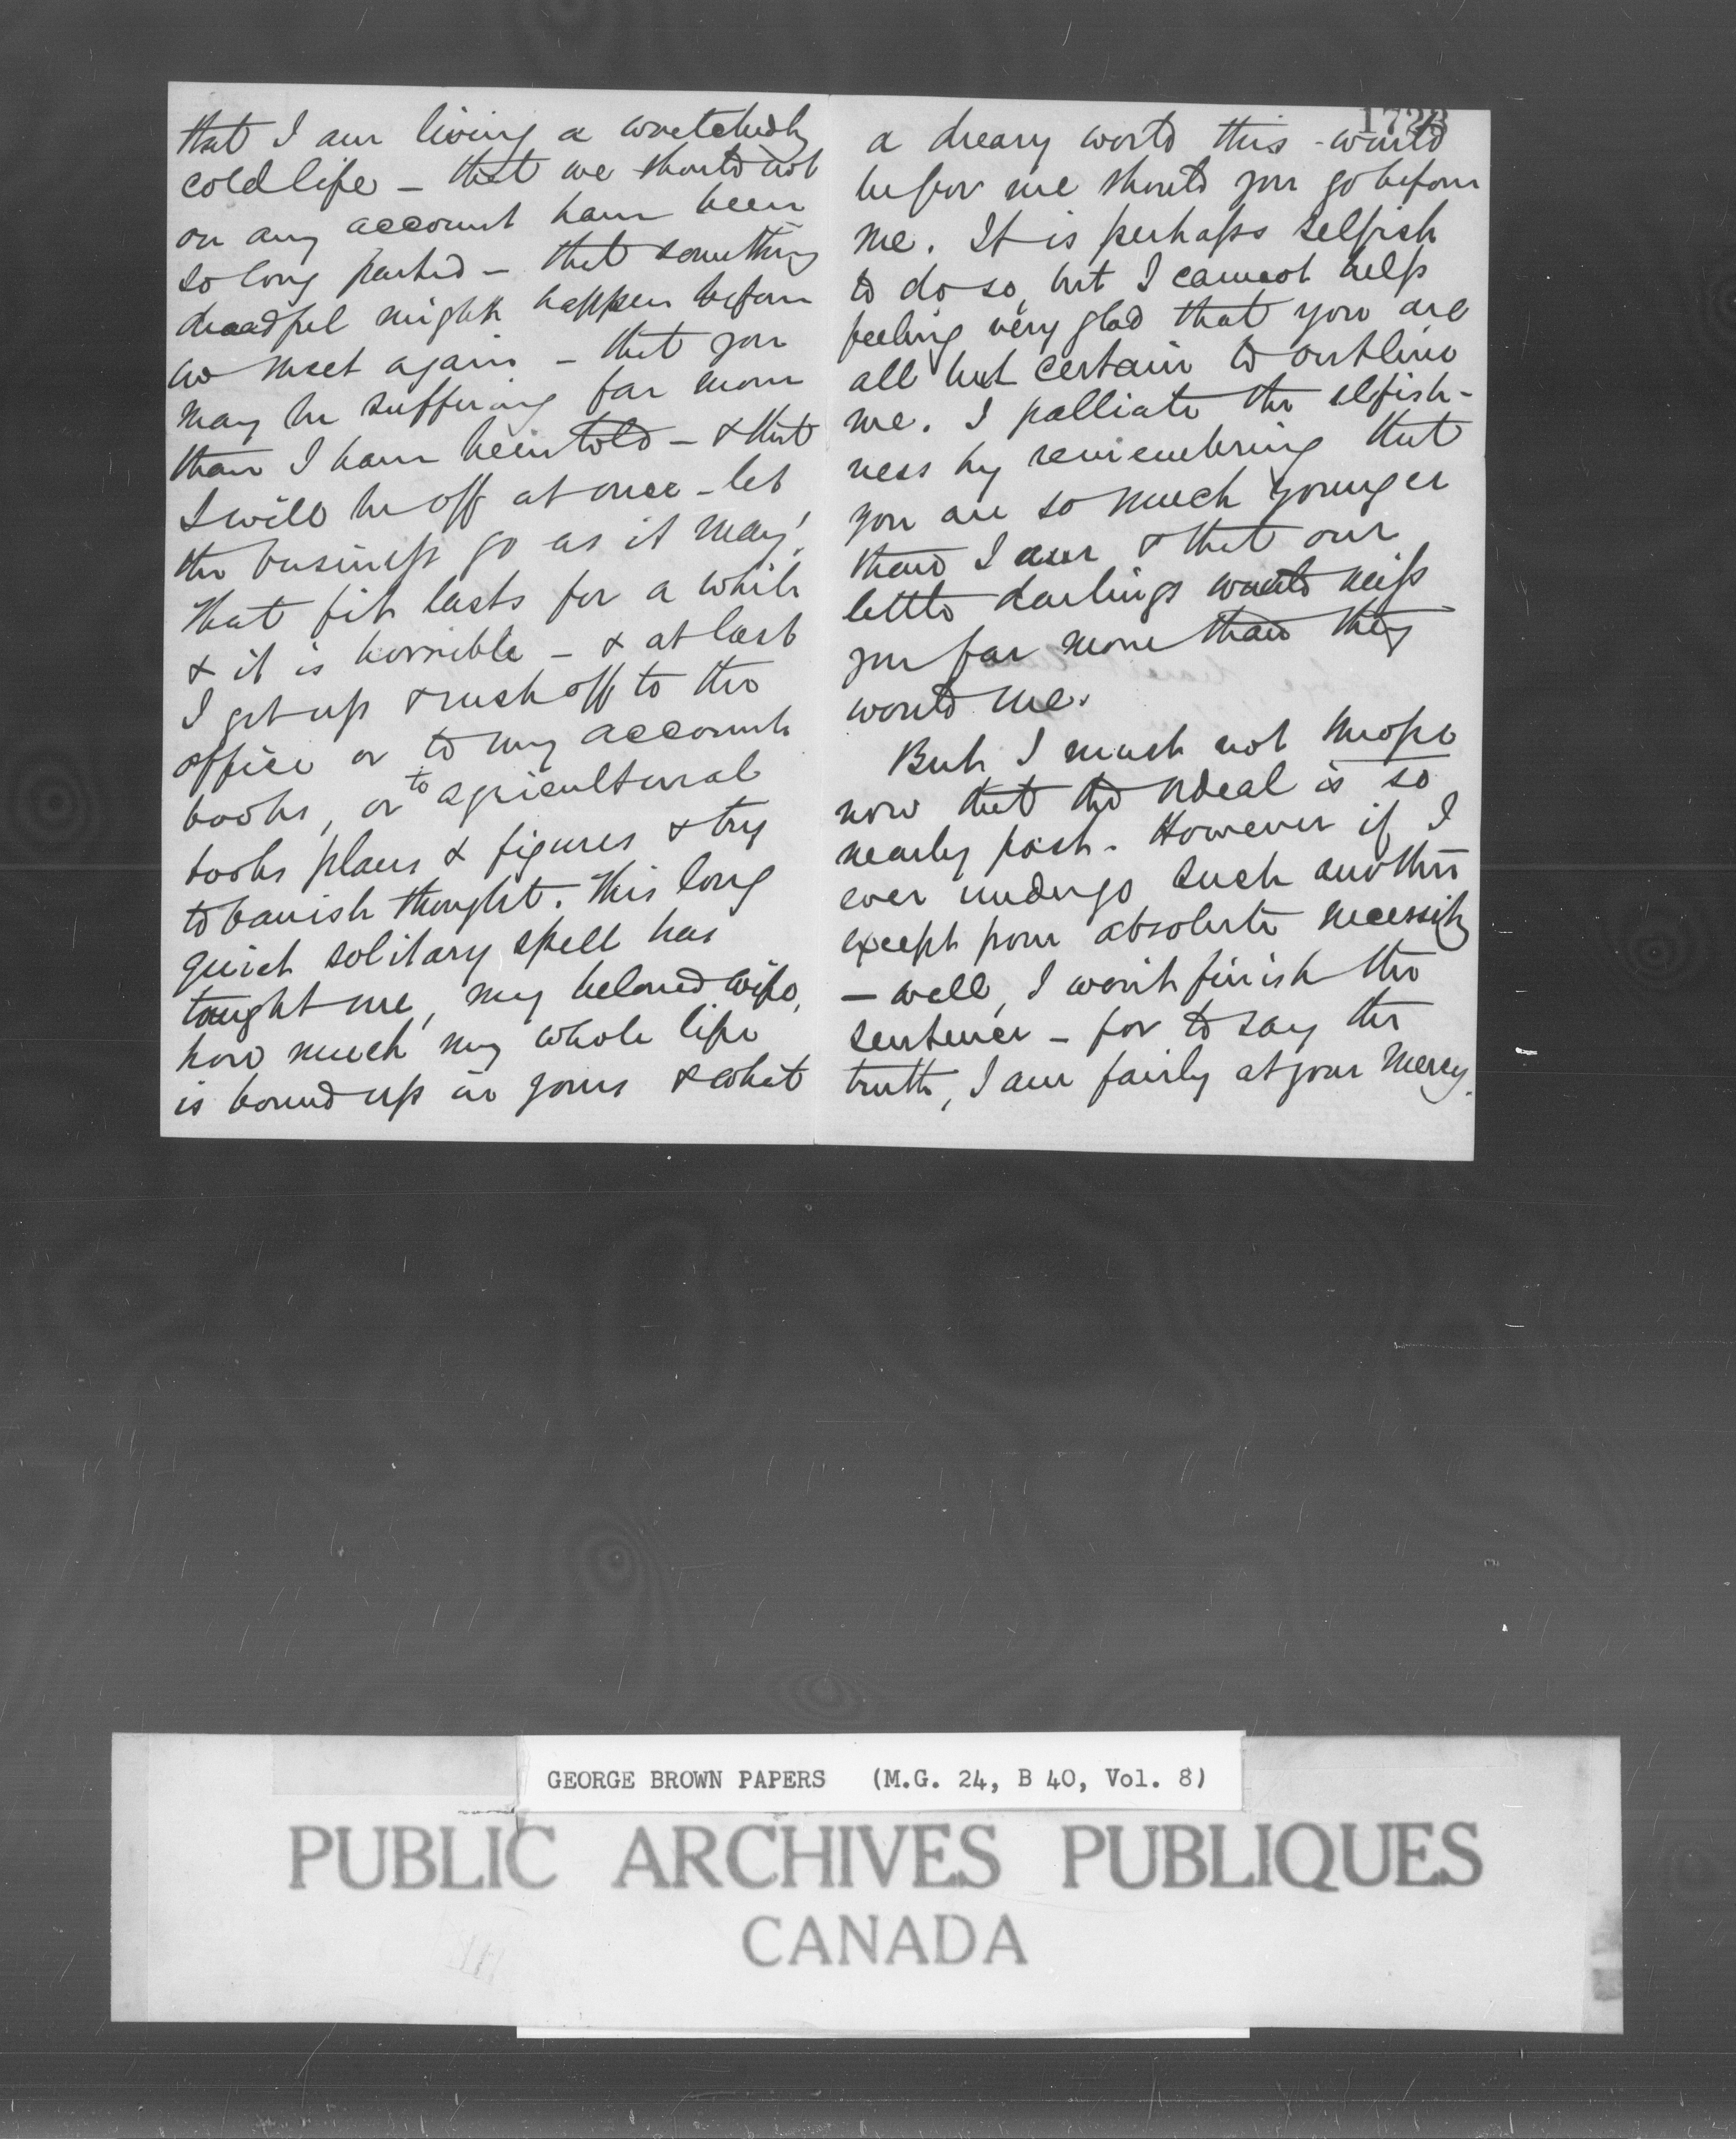 that I am living a wretchedly
cold life – that we should not
on any account have been
so long parted – that something
dreadful might happen before
we meet again – that you
may be suffering far more
than I have been told – & that
I will be off at once – let
the business go as it may!
That fit lasts for a while
& it is horrible – & at last
I get up & rush off to the
office or to my account
books, or to agricultural
books plans & figures & try
to banish thought. This long
quiet solitary spell has
taught me, my beloved wife,
how much my whole life
is bound up in yours & what
1723
a dreary world this would
be for me should you go before
me. It is perhaps selfish
to do so, but I cannot help
feeling very glad that you are
all but certain to outlive
me. I palliate the selfish-
ness by remembering that
you are so much younger
than I am & that our
little darlings would miss
you far more than they
would me.
But I must not mope
now that the ordeal is so
nearly past. However if I
ever undergo such another
except from absolute necessity
– well, I won't finish the
sentence – for to say the
truth, I am fairly at your mercy.
GEORGE BROWN PAPERS (M.G. 24, B 40, Vol. 8)
PUBLIC ARCHIVES PUBLIQUES
CANADA